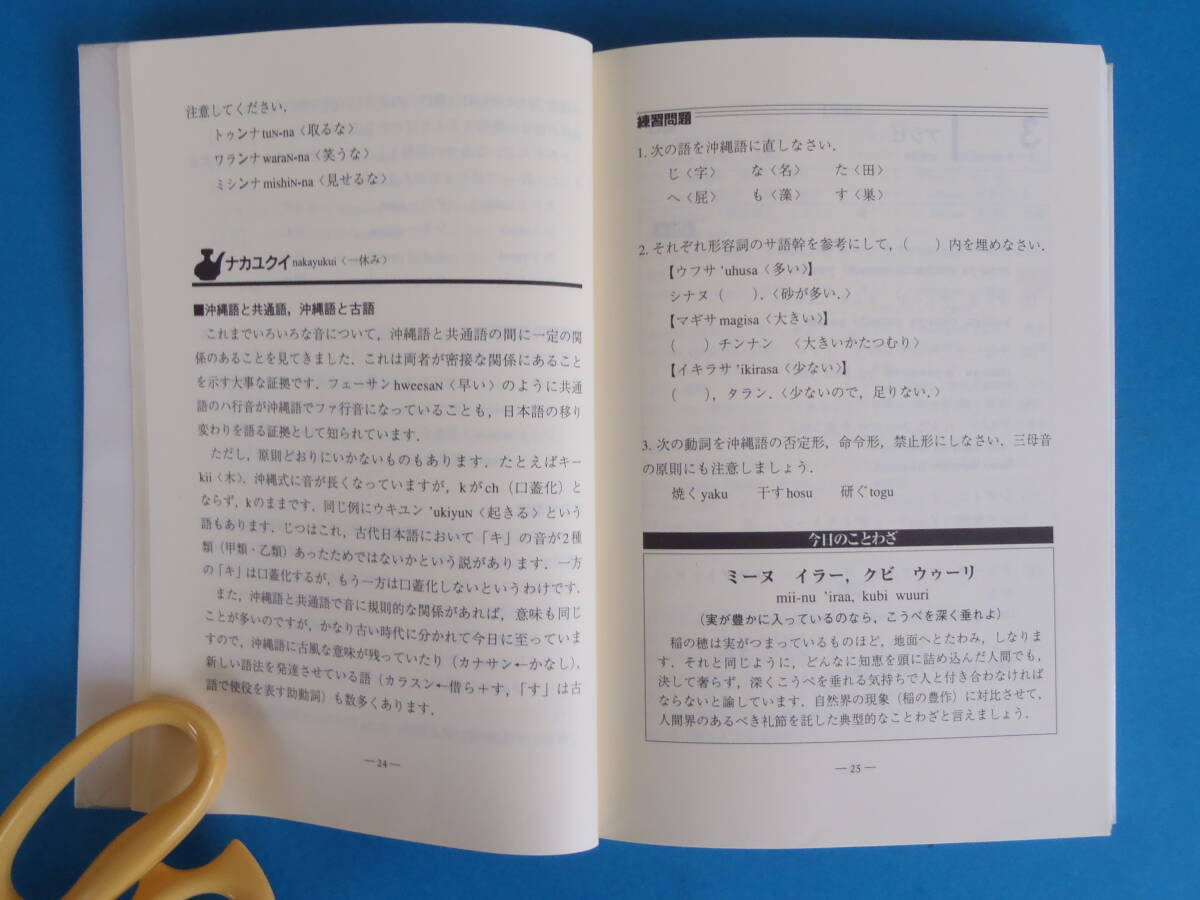 注意してください．
トゥンナtuN-na〈取るな〉
ワランナwaraN-na〈笑うな〉
ミシンナmishiN-na〈見せるな〉
ナカユクイ nakayukui〈一休み〉
■沖縄語と共通語，沖縄語と古語
これまでいろいろな音について，沖縄語と共通語の間に一定の関
係のあることを見てきました．これは両者が密接な関係にあること
を示す大事な証拠です．フェーサンhweesaN〈早い〉のように共通
語のハ行音が沖縄語でファ行音になっていることも，日本語の移り
変わりを語る証拠として知られています．
ただし，原則どおりにいかないものもあります．たとえばキー
kii〈木〉．沖縄式に音が長くなっていますが，kがch（口蓋化）と
ならず，kのままです．同じ例にウキユン 'ukiyuN〈起きる〉という
語もあります．じつはこれ，古代日本語において「キ」の音が2種
類（甲類・乙類）あったためではないかという説があります．一方
の「キ」は口蓋化するが，もう一方は口蓋化しないというわけです．
また，沖縄語と共通語で音に規則的な関係があれば，意味も同じ
ことが多いのですが，かなり古い時代に分かれて今日に至っていま
すので，沖縄語に古風な意味が残っていたり（カナサン←かなし），
新しい語法を発達させている語（カラスン←借ら＋す，「す」は古
語で使役を表す助動詞）も数多くあります．
― 24 ―
練習問題
1. 次の語を沖縄語に直しなさい．
じ〈字〉　な〈名〉　た〈田〉
へ〈屁〉　も〈藻〉　す〈巣〉
2. それぞれ形容詞のサ語幹を参考にして，（　）内を埋めなさい．
【ウフサ 'uhusa〈多い〉】
シナヌ（　）．〈砂が多い．〉
【マギサmagisa〈大きい〉】
（　）チンナン　〈大きいかたつむり〉
【イキラサ 'ikirasa〈少ない〉】
（　），タラン．〈少ないので，足りない．〉
3. 次の動詞を沖縄語の否定形，命令形，禁止形にしなさい．三母音
の原則にも注意しましょう．
焼くyaku　干すhosu　研ぐtogu
今日のことわざ
ミーヌ　イラー，クビ　ウゥーリ
mii-nu 'iraa, kubi wuuri
（実が豊かに入っているのなら，こうべを深く垂れよ）
稲の穂は実がつまっているものほど，地面へとたわみ，しなりま
す．それと同じように，どんなに知恵を頭に詰め込んだ人間でも，
決して奢らず，深くこうべを垂れる気持ちで人と付き合わなければ
ならないと諭しています．自然界の現象（稲の豊作）に対比させて，
人間界のあるべき礼節を託した典型的なことわざと言えましょう．
― 25 ―